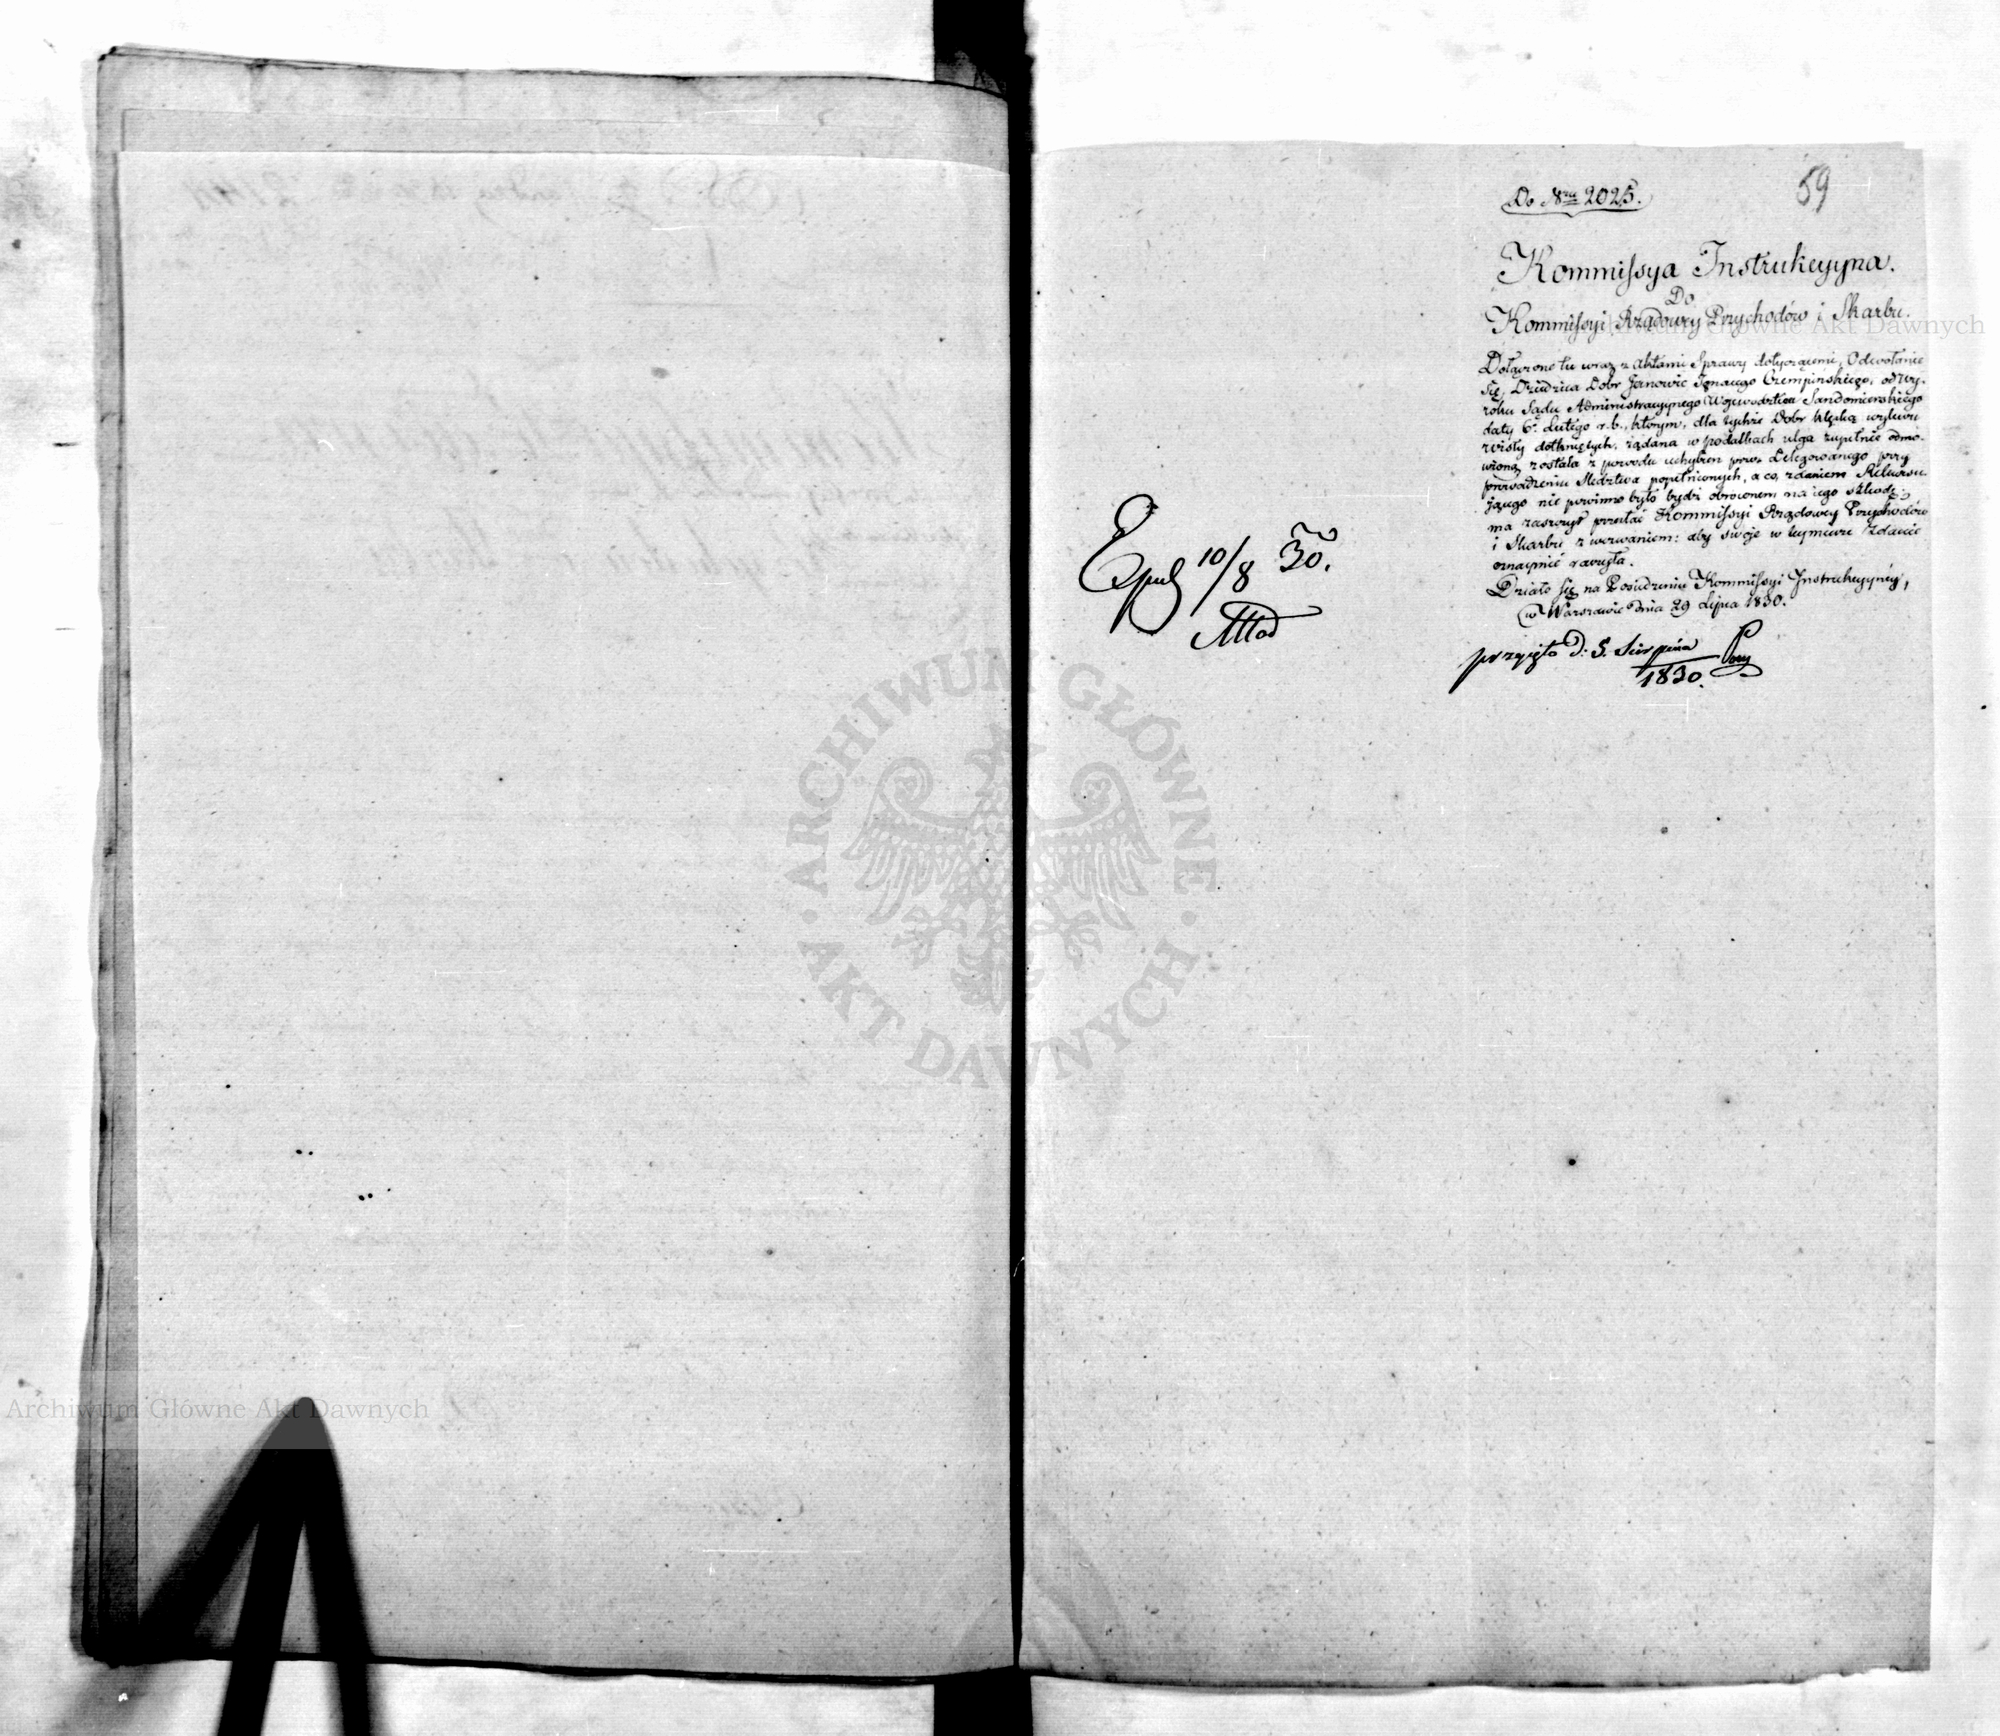 59
Do Nru 2025.
Kommissya Instrukcyyna.
Do
Kommissyi Rządowey Przychodów i Skarbu.
Dołączone tu wraz z Aktami Sprawy dotyczącemi, Odwołanie
się, Dziedzica Dobr Janowic Ignacego Czempińskiego, od wy-
roku Sądu Administracyjnego Woiewództwa Sandomierskiego
daty 6. Lutego r. b., którym, dla tychże Dobr klęską wylewu
wisły dotkniętych, żądana w podatkach ulga zupełnie odmó-
wioną została z powodu uchybień przez Delegowanego przy
prowadzeniu śledztwa popełnionych, a co, zdaniem Rekursu-
jącego nie powinno było bydź obrócone na iego szkodę;
ma zaszczyt przesłać Kommissyi Rządowey Przychodów
i Skarbu z wezwaniem: aby swoje w tey mierze Zdanie
oznaymić raczyła.
Działo się na Posiedzeniu Kommissyi Instrukcyyney,
w Warszawie dnia 29 Lipca 1830.
przyięto d: 5. Sierpnia
1830.
Exped 10/8 30.
ARCHIWUM GŁÓWNE AKT DAWNYCH
Archiwum Główne Akt Dawnych
Archiwum Główne Akt Dawnych